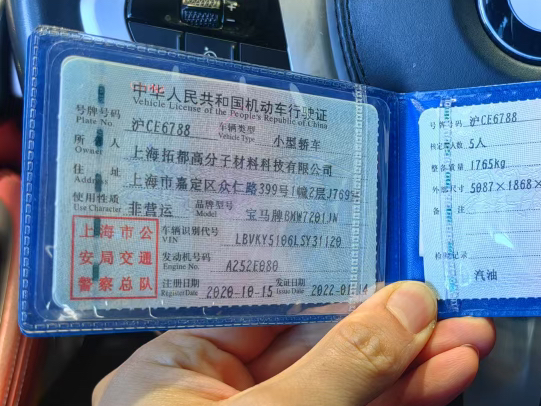 中华人民共和国机动车行驶证
Vehicle License of the People's Republic of China
号牌号码 沪CE6788 车辆类型 小型轿车
Plate No. Vehicle Type
所 有 人 上海拓都高分子材料科技有限公司
Owner
住 址 上海市嘉定区众仁路399号1幢2层J769
Address
使用性质 非营运 品牌型号 宝马牌BMW7201
Use Character Model
车辆识别代号 LBVKY5106LSY31120
VIN
发动机号码 A252E080
Engine No.
注册日期 2020-10-15 发证日期 2022-01-14
Register Date Issue Date
上海市公
安局交通
警察总队
号牌号码 沪CE6788
核定载人数 5人
整备质量 1765kg
外廓尺寸 5087×1868×
备 注
检验记录
汽油